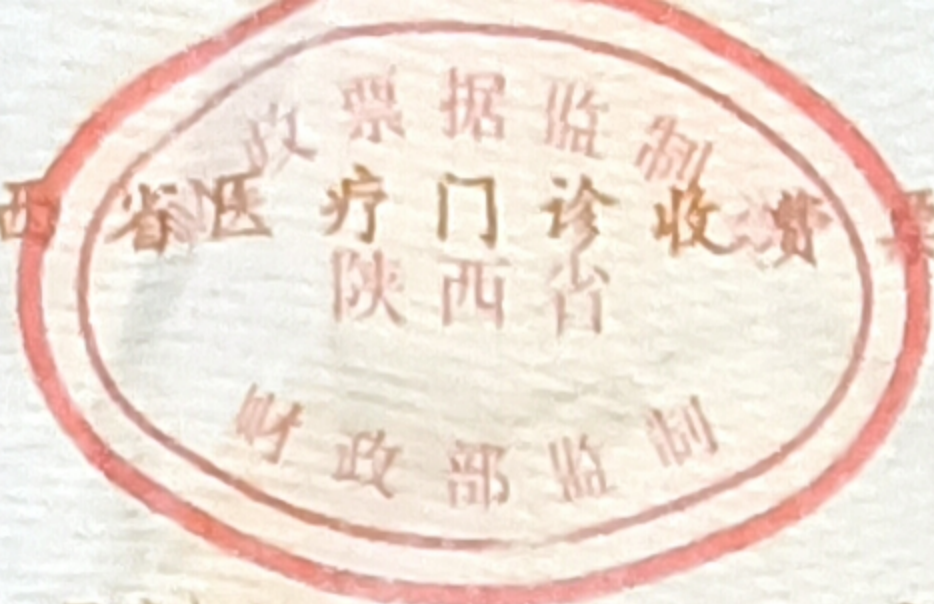 政票据监制
西省医疗门诊收费票
陕西省
财政部监制